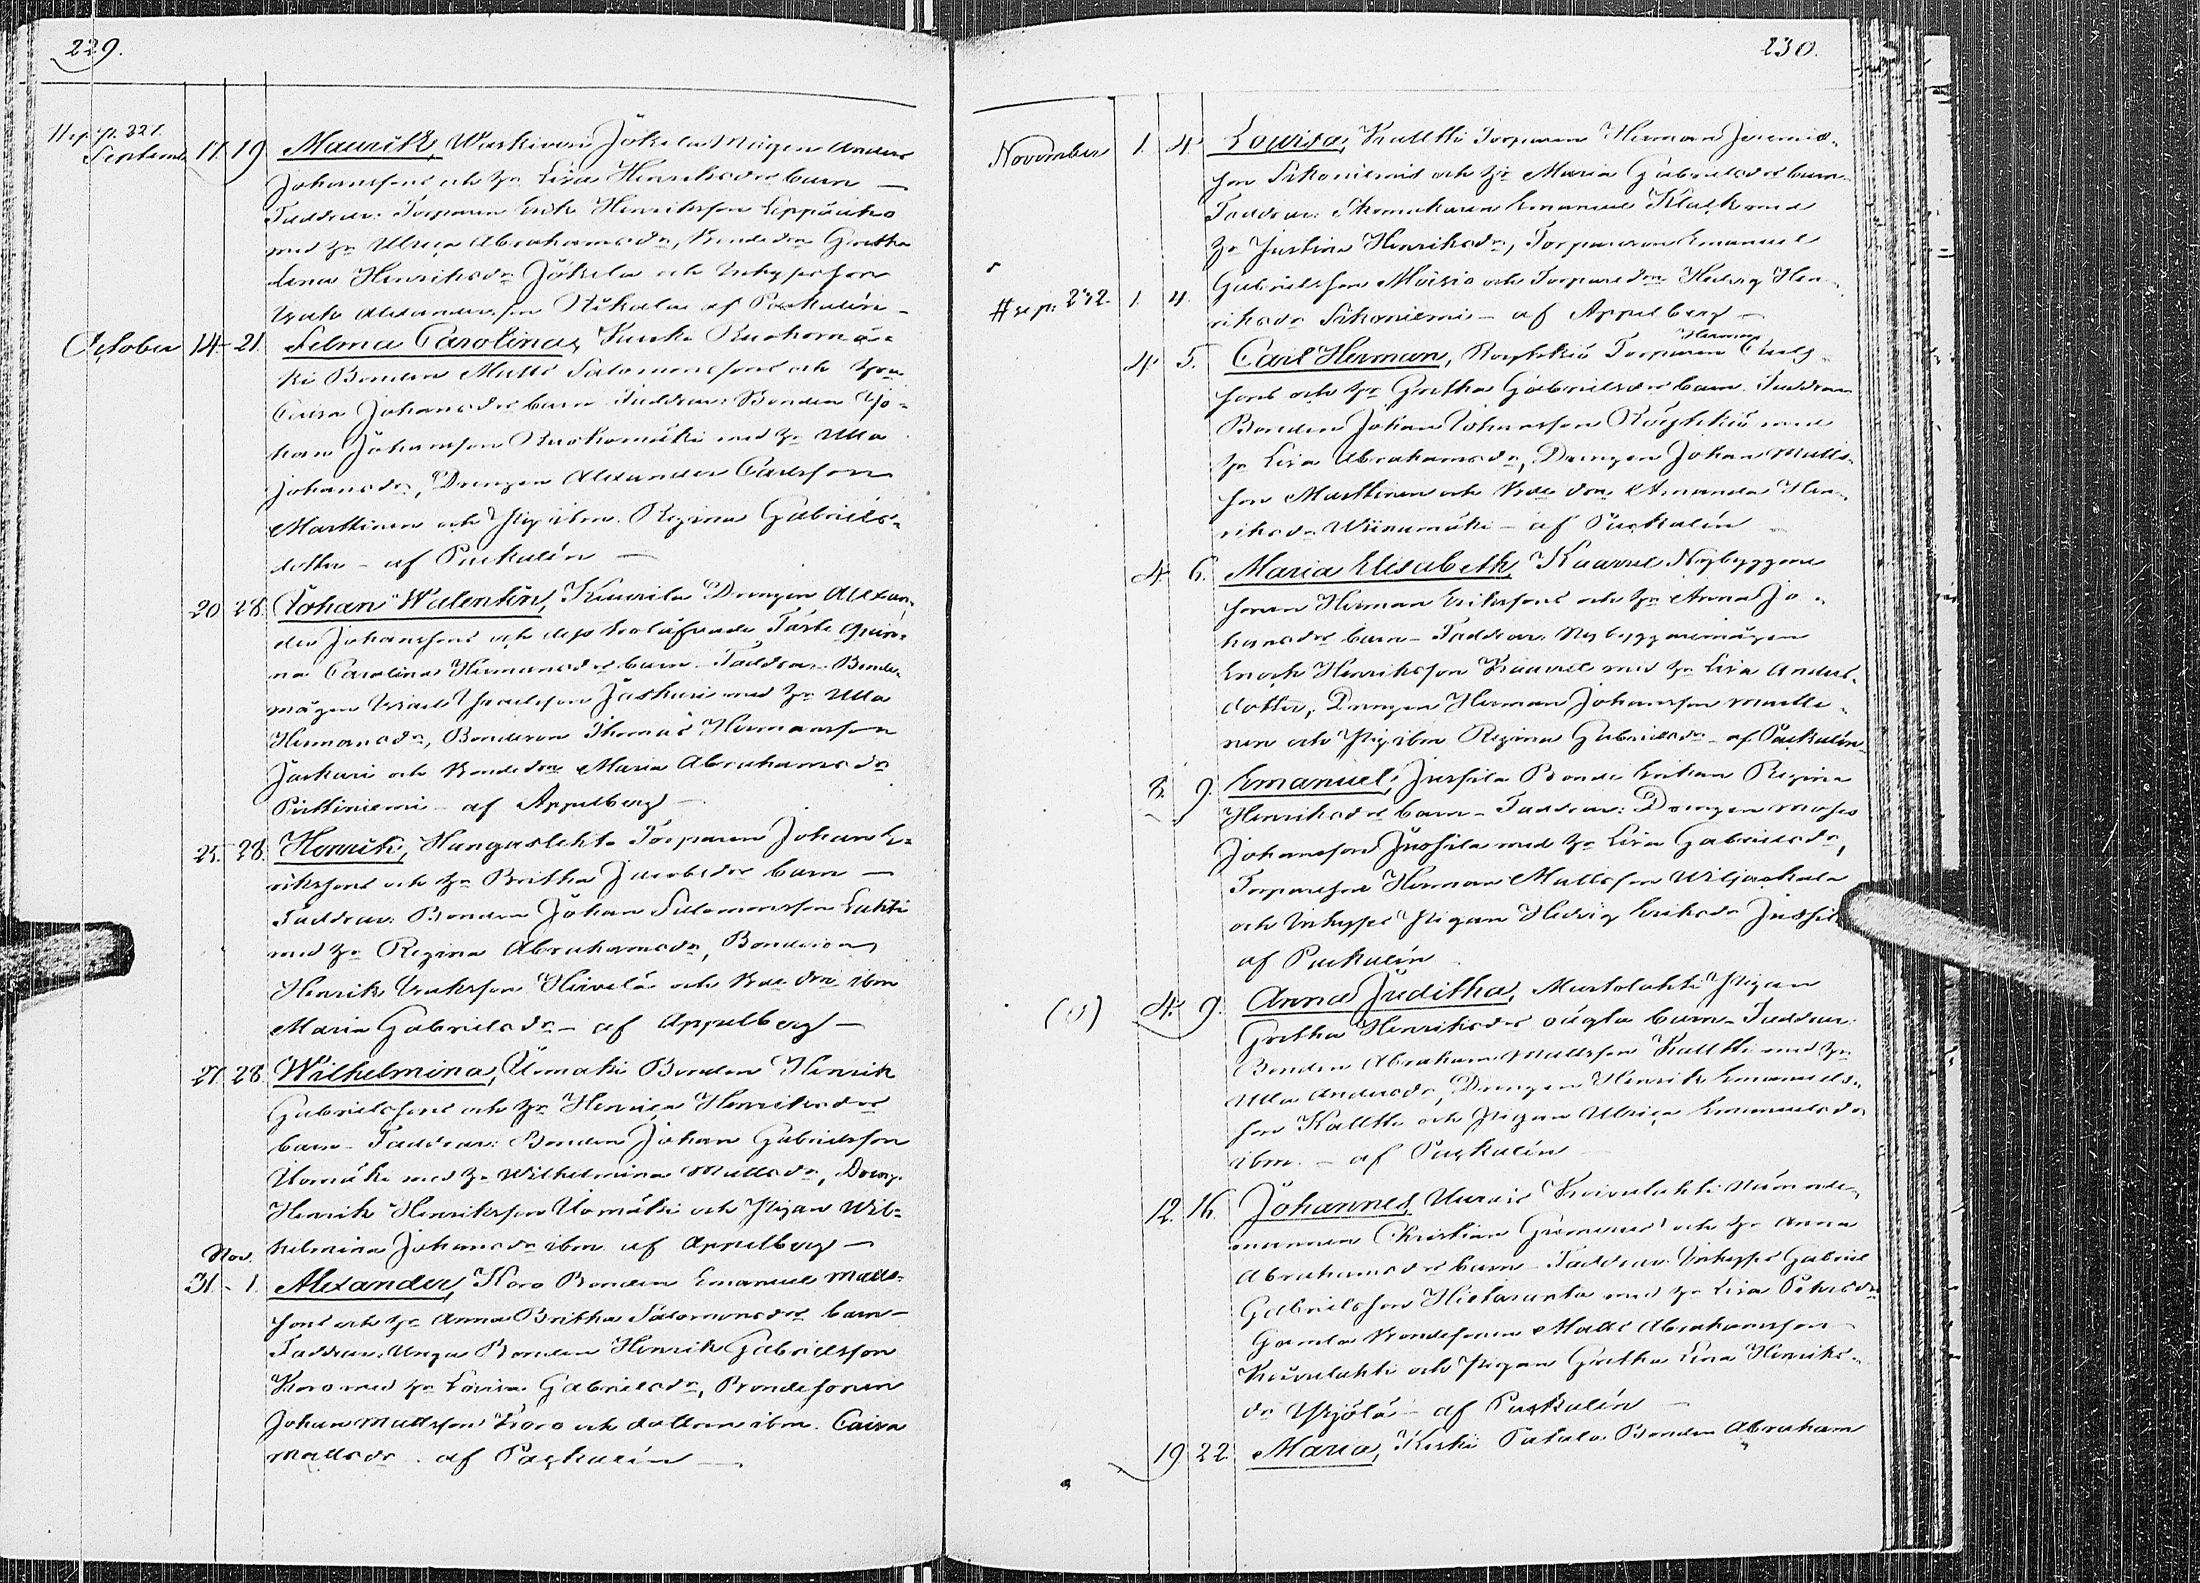 229.
September 17. 19 Maurits, Jökela Mågen Anders
Johanssons och h:s Lisa Henriksdrs barn —
Faddrar: Torparen Erik Henriksson
med h:u Ulrica Abrahamsdr, Bonde dr Gretha
Lena Henriksdr Jökela och Inhyses son
Isak Alexandersson Nikula af Paskalin —
October 14 - 21. Selma Carolina, Ruohomä-
ki Bonden Matts Salomonssons och h:u
Caisa Johansdrs barn Faddrar: Bonden Jo-
han Johansson Ruohomäki med h:u Ulla
Johansdr, Drengen Alexander Carlsson
Marttinen och Pig. ibm. Regina Gabriels-
dotter — af Paskalin —
20. 28. Johan Walentin, Drengen Alexan-
der Johanssons och dess trolofvade Fäste qvin-
na Carolina Hermansdrs barn — Faddrar: Bonde-
mågen Israel Israelsson Jäskari med h:u Ulla
Hermansdr, Bondeson Thomas Hermansson
Jaskari och Bonde dr Maria Abrahamsdr
Pirttiniemi — af Appelberg —
25. 28. Henrik, Torparen Johan E-
rikssons och h:u Britha Jacobsdrs barn —
Faddrar: Bonden Johan Salomonsson Lahti
med h:u Regina Abrahamsdr, Bondeson
Henrik Eriksson Hirvelä och Bde dr ibm
Maria Gabrielsdr — af Appelberg —
27. 28. Wilhelmina, Bonden Henrik
Gabrielssons och h:u Henrica Henriksdrs
barn — Faddrar: Bonden Johan Gabrielsson
med h:u Wilhelmina Mattsdr, Dreng.
Henrik Henriksson och Pigan Wil-
helmina Johansdr ibm. af Appelberg —
Nov.
31. - 1. Alexander, Koro Bonden Emanuel Matts-
sons och h:u Anna Britha Salomonsdrs barn —
Faddrar: Unga Bonden Henrik Gabrielsson
Koro med h:u Lovisa Gabrielsdr, Bondesonen
Johan Mattsson Koro och dottren ibm. Caisa
Mattsdr. af Paskalin —
230.
November 1. 4. Lovisa, Kallthi Torparen Herman Jeremias-
son och h:u Maria Gabrielsdrs barn
Faddrar: Skomakaren Emanuel med
h:u Justina Henriksdr, Torparson Emanuel
Gabrielsson Moisio och Torpare dr Hedvig Hen-
1. 4. riksdr — af Appelberg —
Herman
4. 5. Carl Herman, Torparen Carls-
sons och h:u Gretha Gabrielsdrs barn. Faddrar
Bonden Johan Johansson med
h:u Lisa Abrahamsdr, Drengen Johan Matts-
son Marttinen och Bde dr Amanda Hen-
riksdr Wiinamäki — af Paskalin
4. 6. Maria Elisabeth, Nybyggare
sonen Herman Erikssons och h:u Anna Jo-
hansdrs barn — Faddrar: Nybyggaremågen
Enoch Henriksson med h:u Lisa Anders-
dotter, Drengen Herman Johansson Martti-
nen och Pig ibm Regina Gabrielsdr — af Paskalin
8. 9. Emanuel, Jussila Bonde Enkan Regina
Henriksdrs barn — Faddrar: Drengen Moses
Johansson Jussila med h:u Lisa Gabrielsdr,
Torpareson Herman Mattsson Wiljaskala
och Inhyses Pigan Hedvig Eriksdr Jussila
af Paskalin
4. 9. Anna Juditha, Pigan
Gretha Henriksdrs oägta barn — Faddrar:
Bonden Abraham Mattsson Kallthi med h:u
Ulla Andersdr, Drengen Henrik Emanuels-
son Kallthi och Pigan Ulrica Emanuelsdr
ibm. — af Paskalin —
12. 16. Johannes, Koivulahti Nämnde-
mannen Christian och h:u Anna
Abrahamsdrs barn — Faddrar: Inhyses Gabriel
Gabrielsson Hietaranta med h:u Lisa Petersdr
Gamla Bondesonen Matts Abrahamsson
Koivulahti och Pigan Gretha Lena Henriks-
dr — af Paskalin —
19. 22. Maria, Keski Patala Bonden Abraham